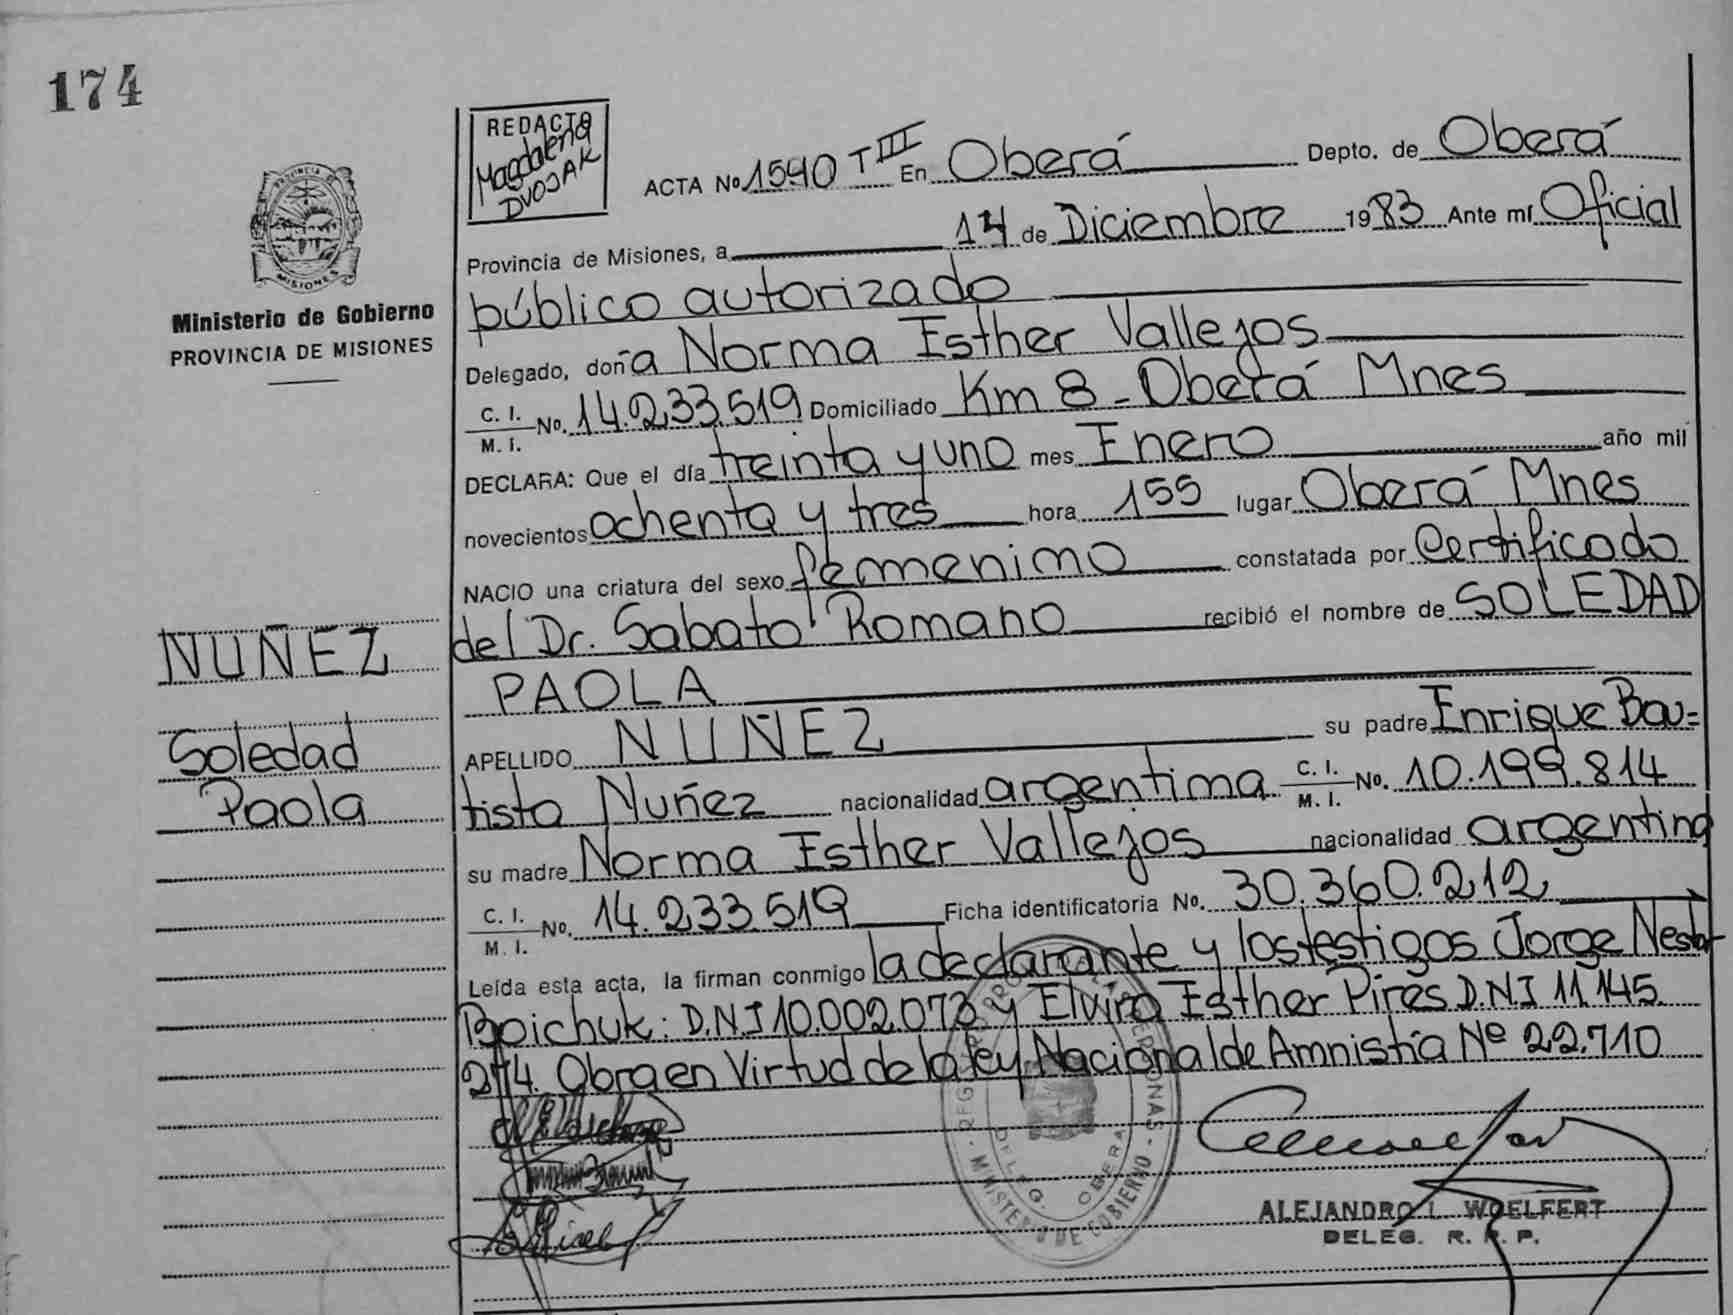 174
REDACTO
Magdalena
DVOJAK
ACTA No 1540 T III En Oberá Depto. de Oberá
Provincia de Misiones, a 14 de Diciembre 1983 Ante mí Oficial
público autorizado
Delegado, doña Norma Esther Vallejos
C. I.
M. I. No. 14.233.519 Domiciliado Km 8 - Oberá Mnes
DECLARA: Que el día treinta y uno mes Enero año mil
novecientos ochenta y tres hora 155 lugar Oberá Mnes
NACIO una criatura del sexo femenino constatada por Certificado
del Dr. Sabato Romano recibió el nombre de SOLEDAD
PAOLA
APELLIDO NUÑEZ su padre Enrique Bau=
tista Nuñez nacionalidad argentina C. I.
M. I. No. 10.199.814
su madre Norma Esther Vallejos nacionalidad argentina
C. I.
M. I. No. 14.233.519 Ficha identificatoria No. 30.360.212
Leída esta acta, la firman conmigo la declarante y los testigos Jorge Nestor
Boichuk: D.N.I 10.002.073 y Elvira Esther Pires D.N.I 11.145.
274. Obra en Virtud de la Ley Nacional de Amnistía Nº 22.710
ALEJANDRO L. WOELFERT
DELEG. R. P. P.
PROVINCIA DE
MISIONES
Ministerio de Gobierno
PROVINCIA DE MISIONES
NUÑEZ
Soledad
Paola
MINISTERIO DE GOBIERNO
DELEG. OBERA